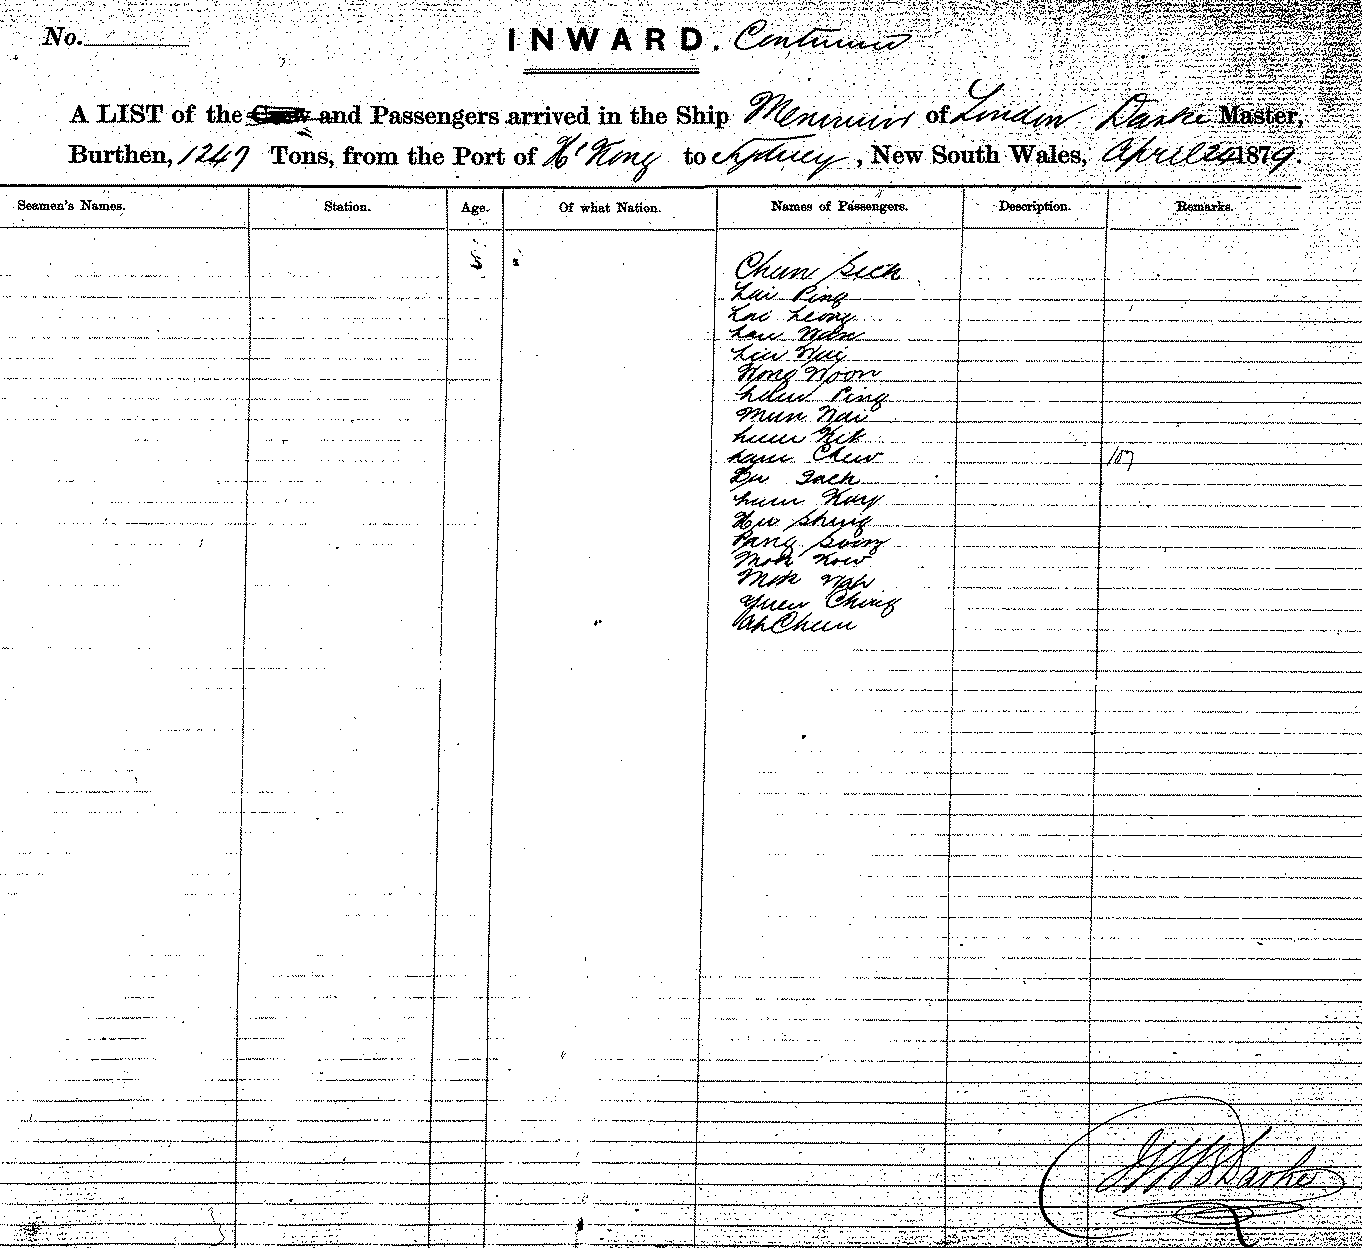 No.
INWARD. Continued
A LIST of the Crew and Passengers arrived in the Ship of London Darke Master,
Burthen, 1247 Tons, from the Port of H'Kong to Sydney, New South Wales, April 24 1879.
Seamen's Names. Station. Age. Of what Nation. Names of Passengers. Description. Remarks.
Chun Sick
Lai Ping
Lai Leong
Lau Wan
Liu Wai
Wong Woon
Lauw Ping
Mun Nai
Lum Kit
Lam Chew 107
Lum Kay
Hu Shing
Pang
Mok Kow
Mok Wah
Yuen Ching
Ah Chun
Darke